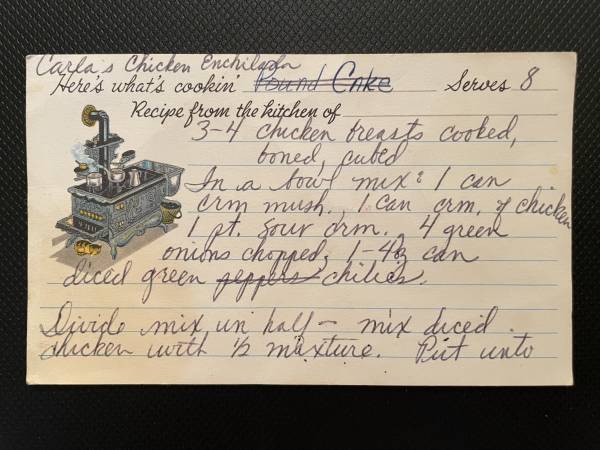 Carla's Chicken Enchilada
Here's what's cookin' Pound Cake Serves 8
Recipe from the kitchen of
3-4 chicken breasts cooked,
boned, cubed
In a bowl mix: 1 can
crm mush, 1 can crm. of chicken
1 pt. sour crm. 4 green
onions chopped, 1-4oz can
diced green peppers chilies.
Divide mix in half - mix diced
chicken with 1/2 mixture. Put into